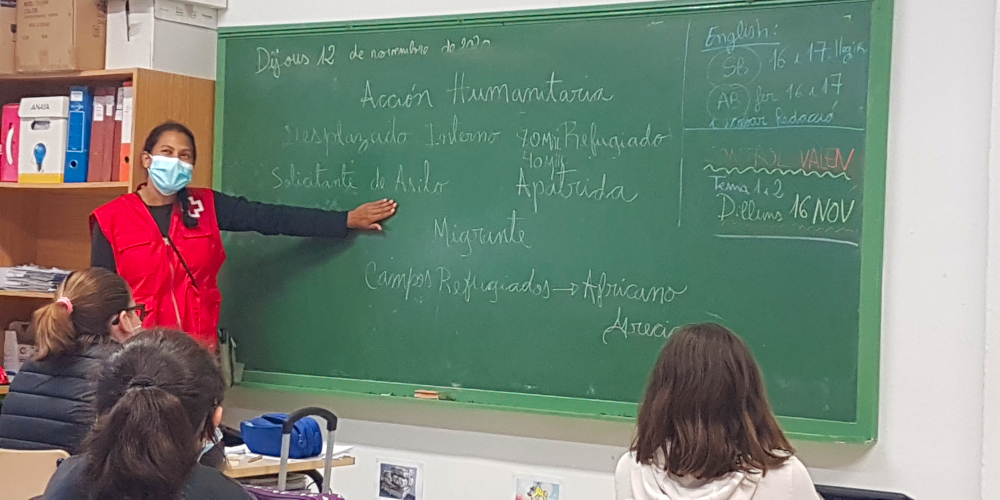 Dijous 12 de novembre de 2020
Acción Humanitaria
Desplazado Interno 70 Mill Refugiado
40 Mill
Solicitante de Asilo Apátrida
Migrante
Campos Refugiados → Africano
English:
5B 16 i 17: llegir
AB fer 16 i 17
Redacció
CONTROL VALEN
Tema 1 i 2
Dilluns 16 NOV
ANAYA